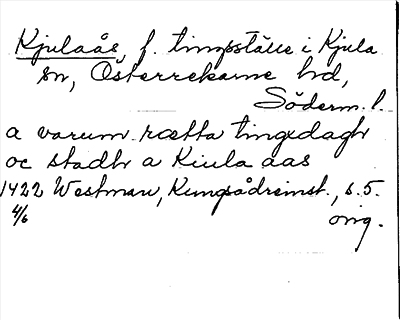 Kjulaås, f. tingställe i Kjula
sn, Österrekarne hd,
Söderm. l.
a varum rætta tingxdagh
oc stadh a Kiula aas
1422 Westman, Kungsådreinst., s. 5.
4/6 orig.